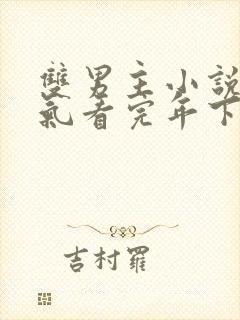 雙男主小說
氣看完年下
吉村羅